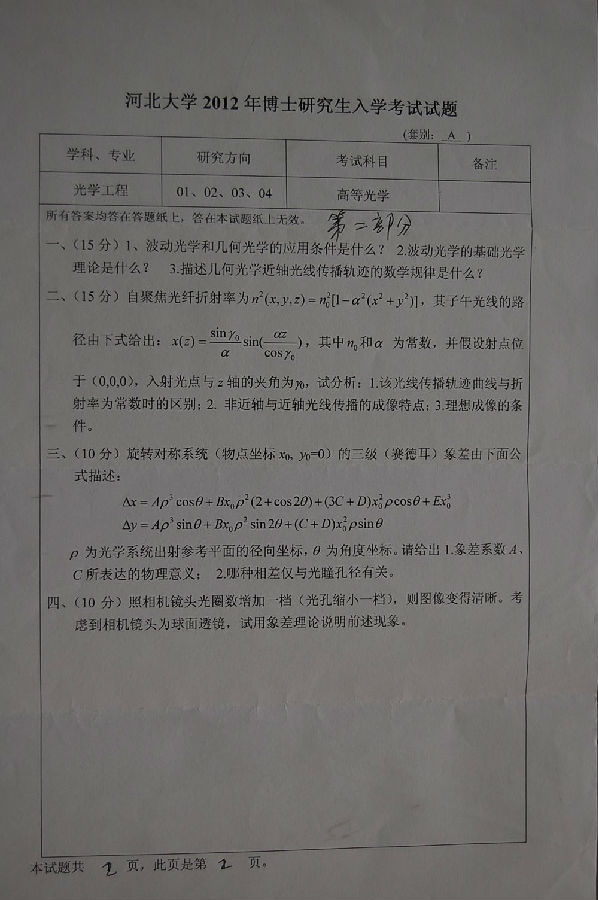 河北大学 2012 年博士研究生入学考试试题
(套别: A )
学科、专业 研究方向 考试科目 备注
光学工程 01、02、03、04 高等光学
所有答案均答在答题纸上,答在本试题纸上无效。 第二部分
一、(15 分)1、波动光学和几何光学的应用条件是什么? 2.波动光学的基础光学
理论是什么? 3.描述几何光学近轴光线传播轨迹的数学规律是什么?
二、(15 分)自聚焦光纤折射率为 n²(x,y,z)=n₀²[1−α²(x²+y²)],其子午光线的路
径由下式给出:x(z)=sinγ₀/α sin(αz/cosγ₀),其中 n₀ 和 α 为常数,并假设射点位
于(0,0,0),入射光点与 z 轴的夹角为γ₀,试分析:1.该光线传播轨迹曲线与折
射率为常数时的区别;2. 非近轴与近轴光线传播的成像特点;3.理想成像的条
件。
三、(10 分)旋转对称系统(物点坐标 x₀, y₀=0)的三级(赛德耳)象差由下面公
式描述:
Δx = Aρ³cosθ + Bx₀ρ²(2+cos2θ)+(3C+D)x₀²ρcosθ+Ex₀³
Δy = Aρ³sinθ + Bx₀ρ²sin2θ+(C+D)x₀²ρsinθ
ρ 为光学系统出射参考平面的径向坐标,θ 为角度坐标。请给出 1.象差系数 A、
C 所表达的物理意义; 2.哪种相差仅与光瞳孔径有关。
四、(10 分)照相机镜头光圈数增加一档(光孔缩小一档),则图像变得清晰。考
虑到相机镜头为球面透镜,试用象差理论说明前述现象。
本试题共 2 页,此页是第 2 页。